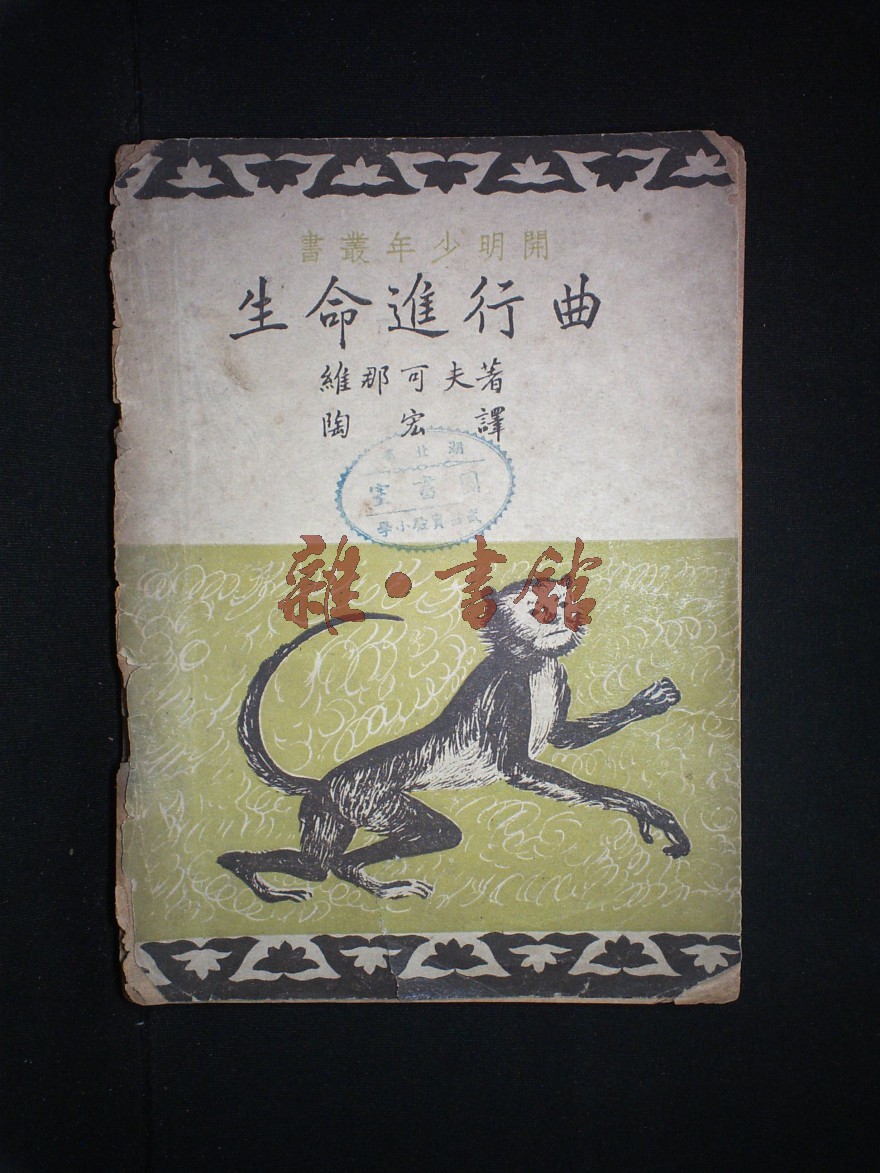 開明少年叢書
生命進行曲
維那可夫著
陶宏譯
湖北省
圖書室
實驗小學
雜·書館